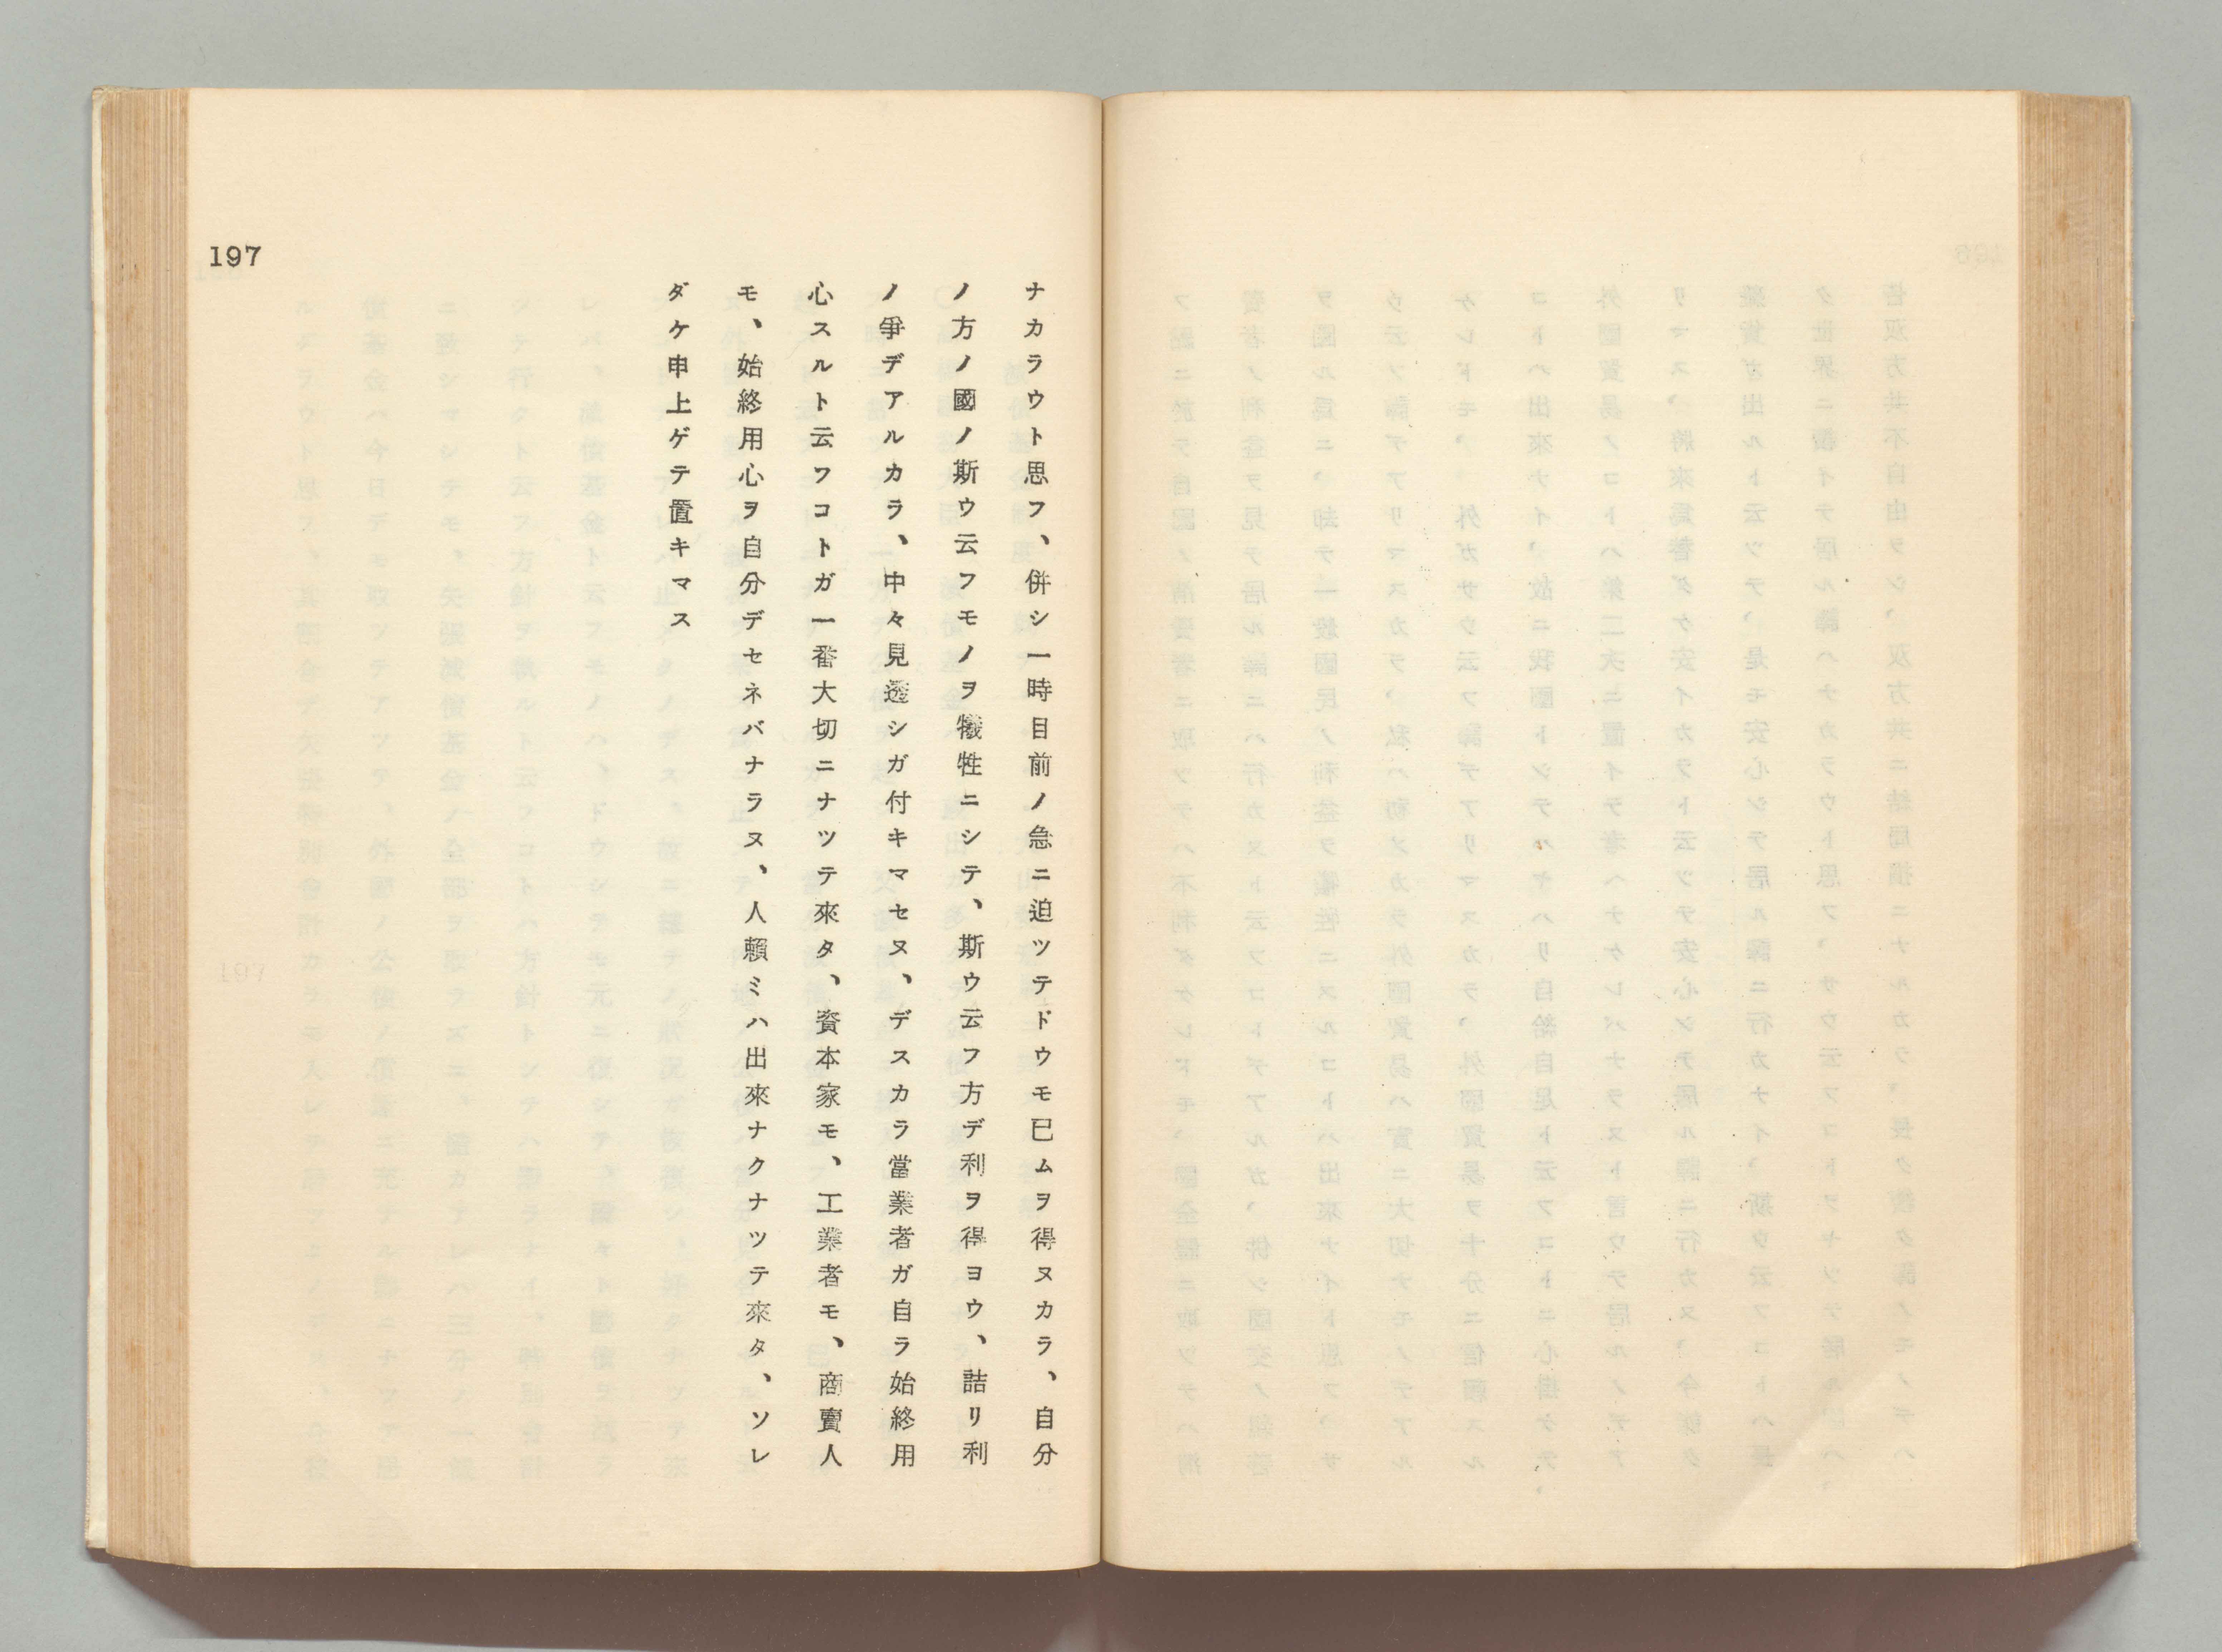 ナカラウト思フ、併シ一時目前ノ急ニ迫ツテドウモ已ムヲ得ヌカラ、自分
ノ方ノ國ノ斯ウ云フモノヲ犧牲ニシテ、斯ウ云フ方デ利ヲ得ヨウ、詰リ利
ノ爭デアルカラ、中々見透シガ付キマセヌ、デスカラ當業者ガ自ラ始終用
心スルト云フコトガ一番大切ニナツテ來タ、資本家モ、工業者モ、商賣人
モ、始終用心ヲ自分デセネバナラヌ、人賴ミハ出來ナクナツテ來タ、ソレ
ダケ申上ゲテ置キマス
197